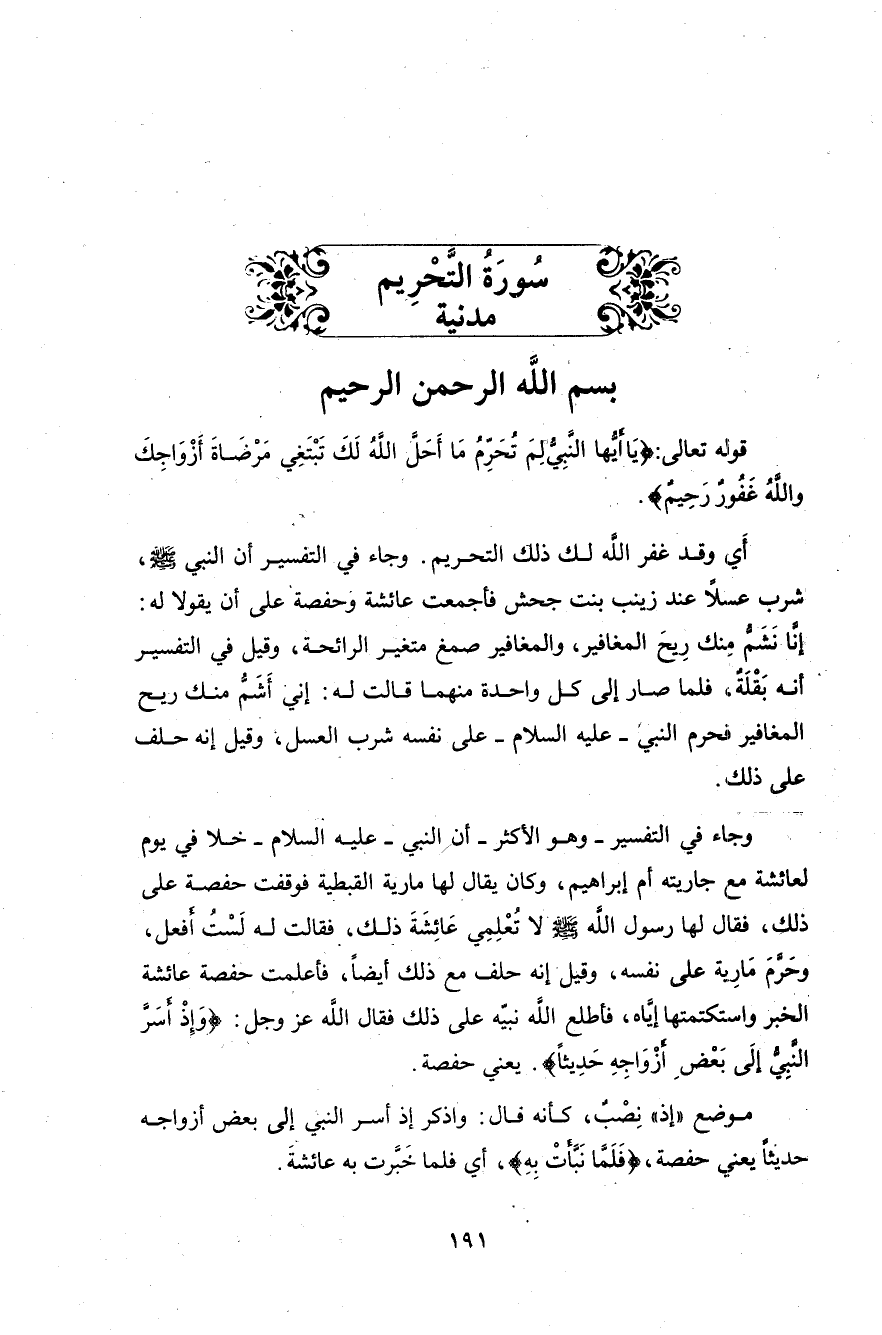 سُورَةُ التَّحْرِيم
مدنية
بسم اللَّه الرحمن الرحيم
قوله تعالى:﴿يَا أَيُّها النَّبِيُّ لِمَ تُحَرِّمُ مَا أَحَلَّ اللَّهُ لَكَ تَبْتَغِي مَرْضَاةَ أَزْوَاجِكَ
واللَّهُ غَفُورٌ رَحِيمٌ﴾.
أَي وقد غفر اللَّه لك ذلك التحريم. وجاء في التفسير أن النبي ﷺ،
شرب عسلاً عند زينب بنت جحش فأجمعت عائشة وحفصة على أن يقولا له:
إنَّا نَشَمُّ مِنك رِيحَ المغافير، والمغافير صمغ متغير الرائحة، وقيل في التفسير
أنه بَقْلَةٌ، فلما صار إلى كل واحدة منهما قالت له: إني أَشَمُّ منك ريح
المغافير فحرم النبي ـ عليه السلام ـ على نفسه شرب العسل، وقيل إنه حلف
على ذلك.
وجاء في التفسير ـ وهو الأكثر ـ أن النبي ـ عليه السلام ـ خلا في يوم
لعائشة مع جاريته أم إبراهيم، وكان يقال لها مارية القبطية فوقفت حفصة على
ذلك، فقال لها رسول اللَّه ﷺ لا تُعْلِمِي عَائِشَةَ ذلك، فقالت له لَسْتُ أَفعل،
وحَرَّمَ مَارِية على نفسه، وقيل إنه حلف مع ذلك أيضاً، فأعلمت حفصة عائشة
الخبر واستكتمتها إيَّاه، فأطلع اللَّه نبيّه على ذلك فقال اللَّه عز وجل: ﴿وَإِذْ أَسَرَّ
النَّبِيُّ إلَى بَعْضِ أَزْوَاجِهِ حَدِيثاً﴾. يعني حفصة.
موضع «إذ» نِصْبٌ، كأنه قال: واذكر إذ أسر النبي إلى بعض أزواجه
حديثاً يعني حفصة،﴿فَلَمَّا نَبَّأَتْ بِهِ﴾، أي فلما خَبَّرت به عائشةَ.
١٩١